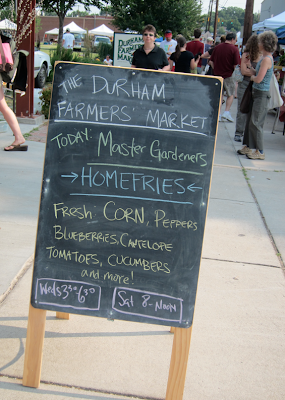 THE DURHAM
FARMERS' MARKET
TODAY: Master Gardeners
→HOMEFRIES←
FRESH: CORN, PEPPERS
BLUEBERRIES, CANTELOPE
TOMATOES, CUCUMBERS
and more!
Weds 3³⁰-6³⁰
Sat 8-Noon
DURHAM